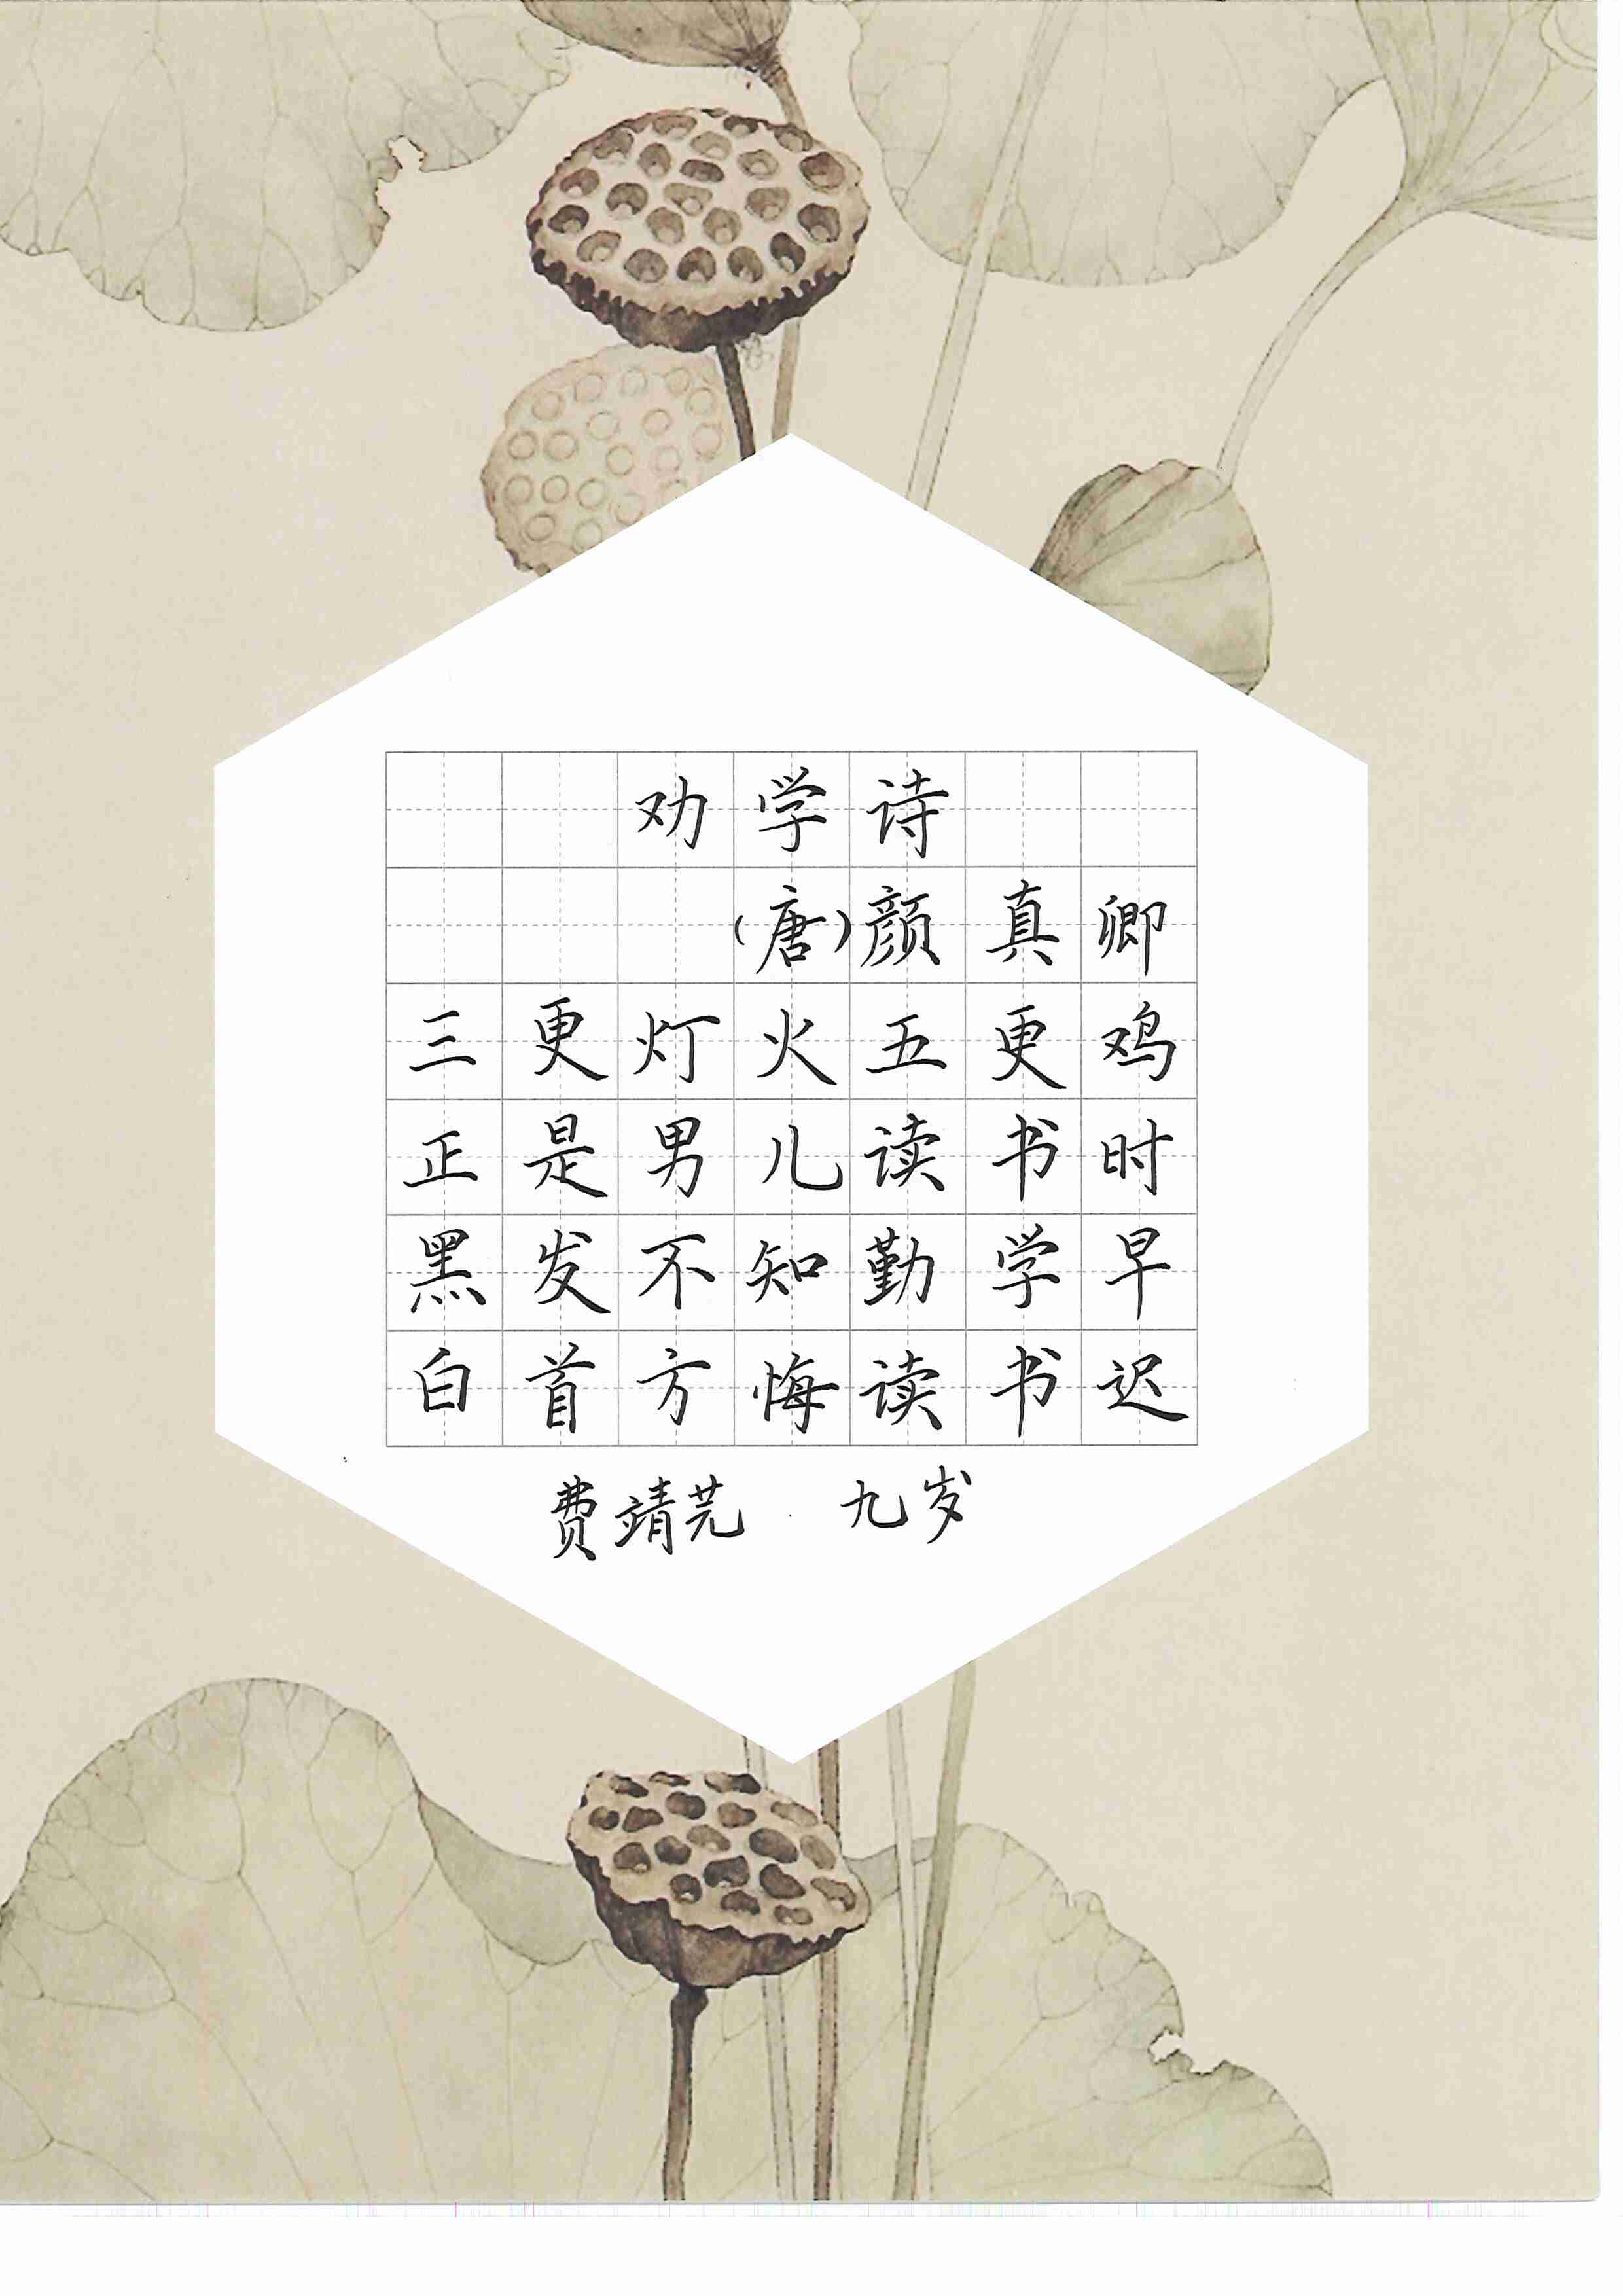 劝学诗
(唐)颜真卿
三更灯火五更鸡
正是男儿读书时
黑发不知勤学早
白首方悔读书迟
费靖芫 九岁